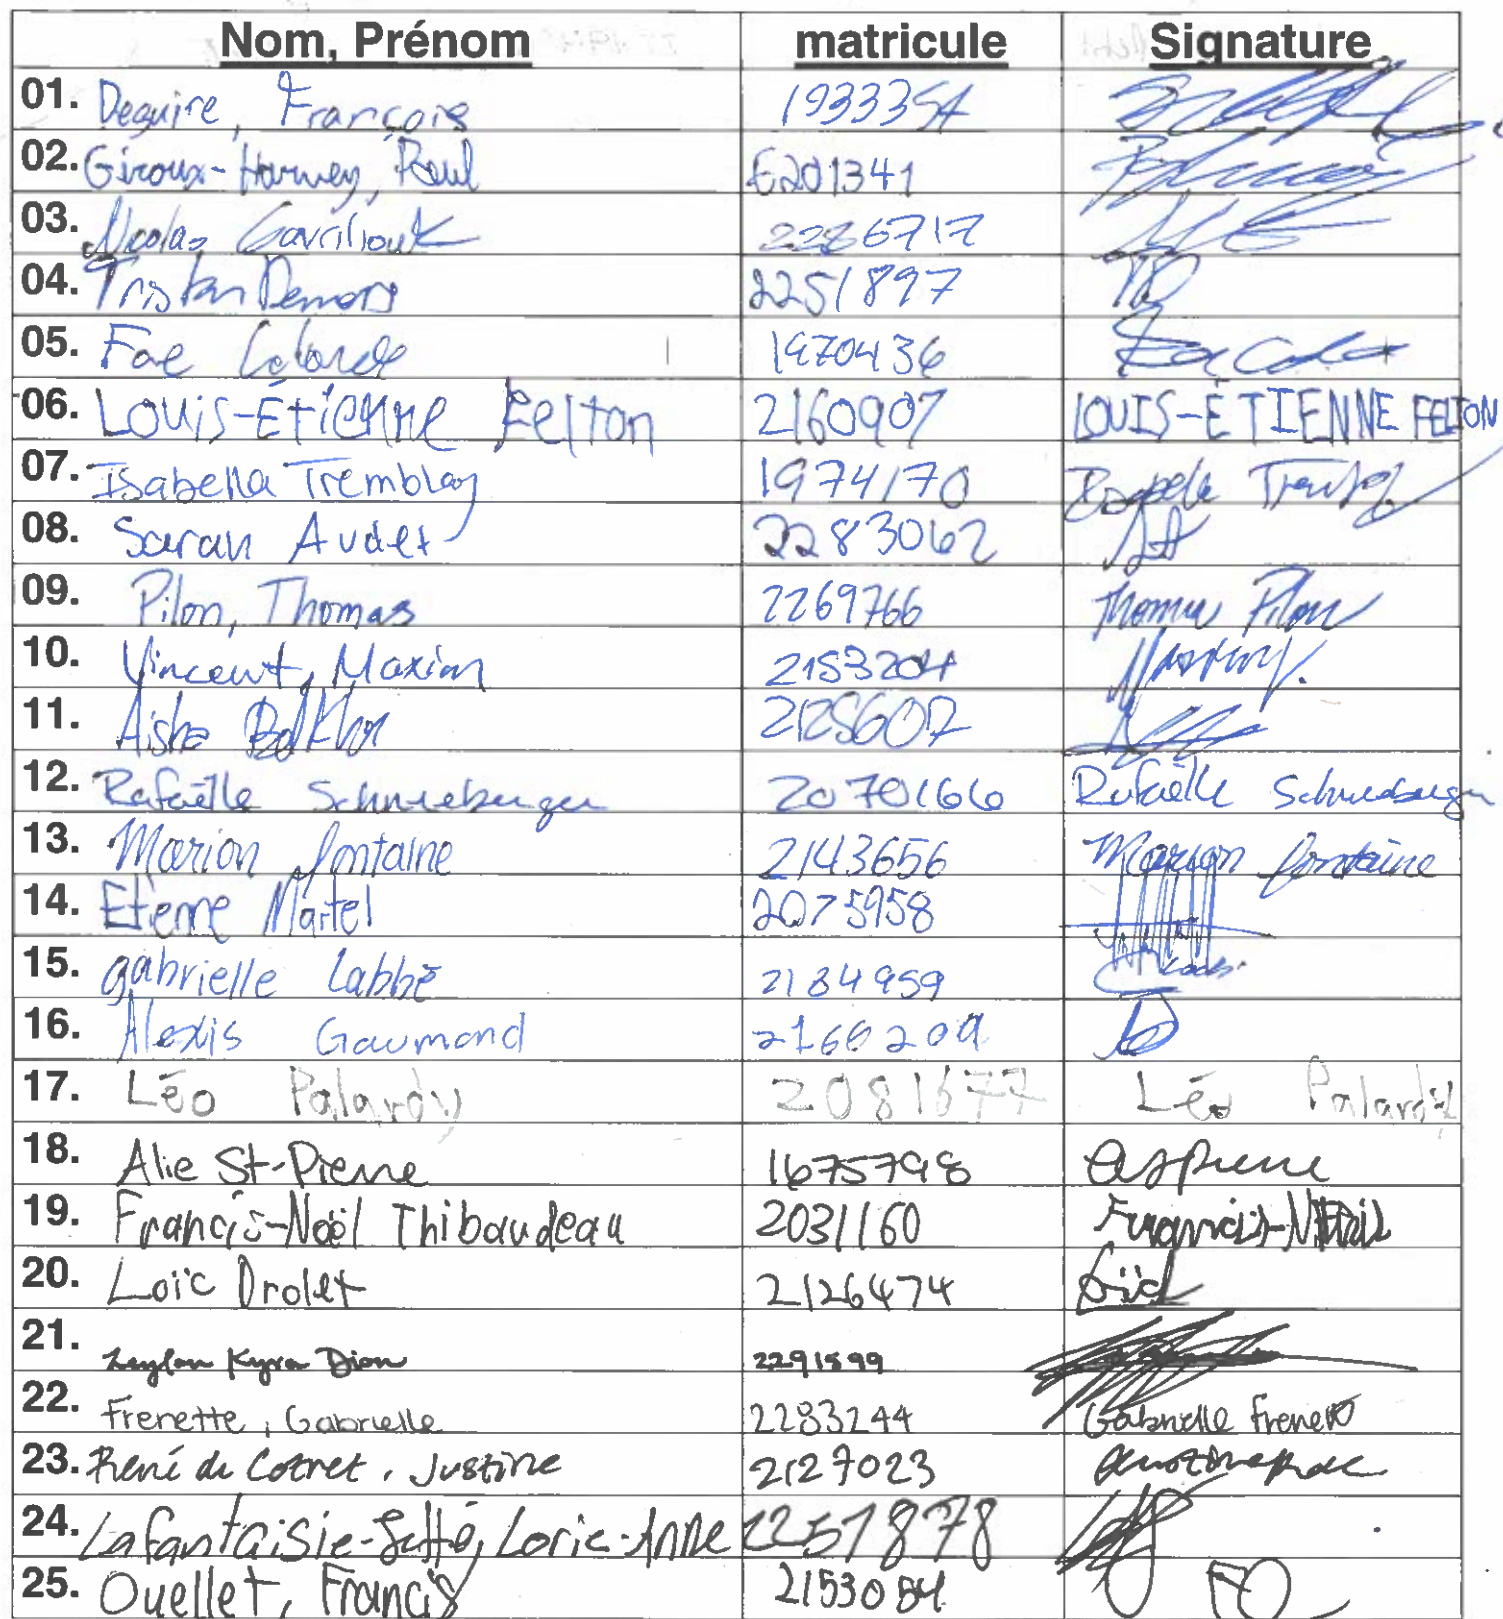 Nom, Prénom matricule Signature
01. Deguire, François 1933354
02. Giroux-Harvey, Paul 6201341
03. Nicolas Gavriliouk 2286717
04. Tristan Demers 2251897 TD
05. Fae 1970436
06. Louis-Étienne Felton 2160907 LOUIS-ÉTIENNE FELTON
07. Isabella Tremblay 1974170 Isabella Tremblay
08. Sarah Audet 2283062 SA
09. Pilon, Thomas 2269766 Thomas Pilon
10. Vincent, Maxim 2153204
11. Aisha 2125607
12. Rafaëlle Schneeberger 2070166 Rafaëlle Schneeberger
13. Marion fontaine 2143656 Marion fontaine
14. Etienne Martel 2075958
15. gabrielle Labbé 2184959
16. Alexis Gaumond 2166209
17. Léo Palardy 2081677 Léo Palardy
18. Alie St-Pierre 1675798
19. Francis-Noël Thibaudeau 2031160
20. Loïc Drolet 2126474
21. Kyra Dion 2291599
22. Frenette, Gabrielle 2283244 Gabrielle Frenette
23. René de Cotret, Justine 2127023
24. Lafantaisie- Lorie-Anne 2251878
25. Ouellet, Francis 2153084 FO